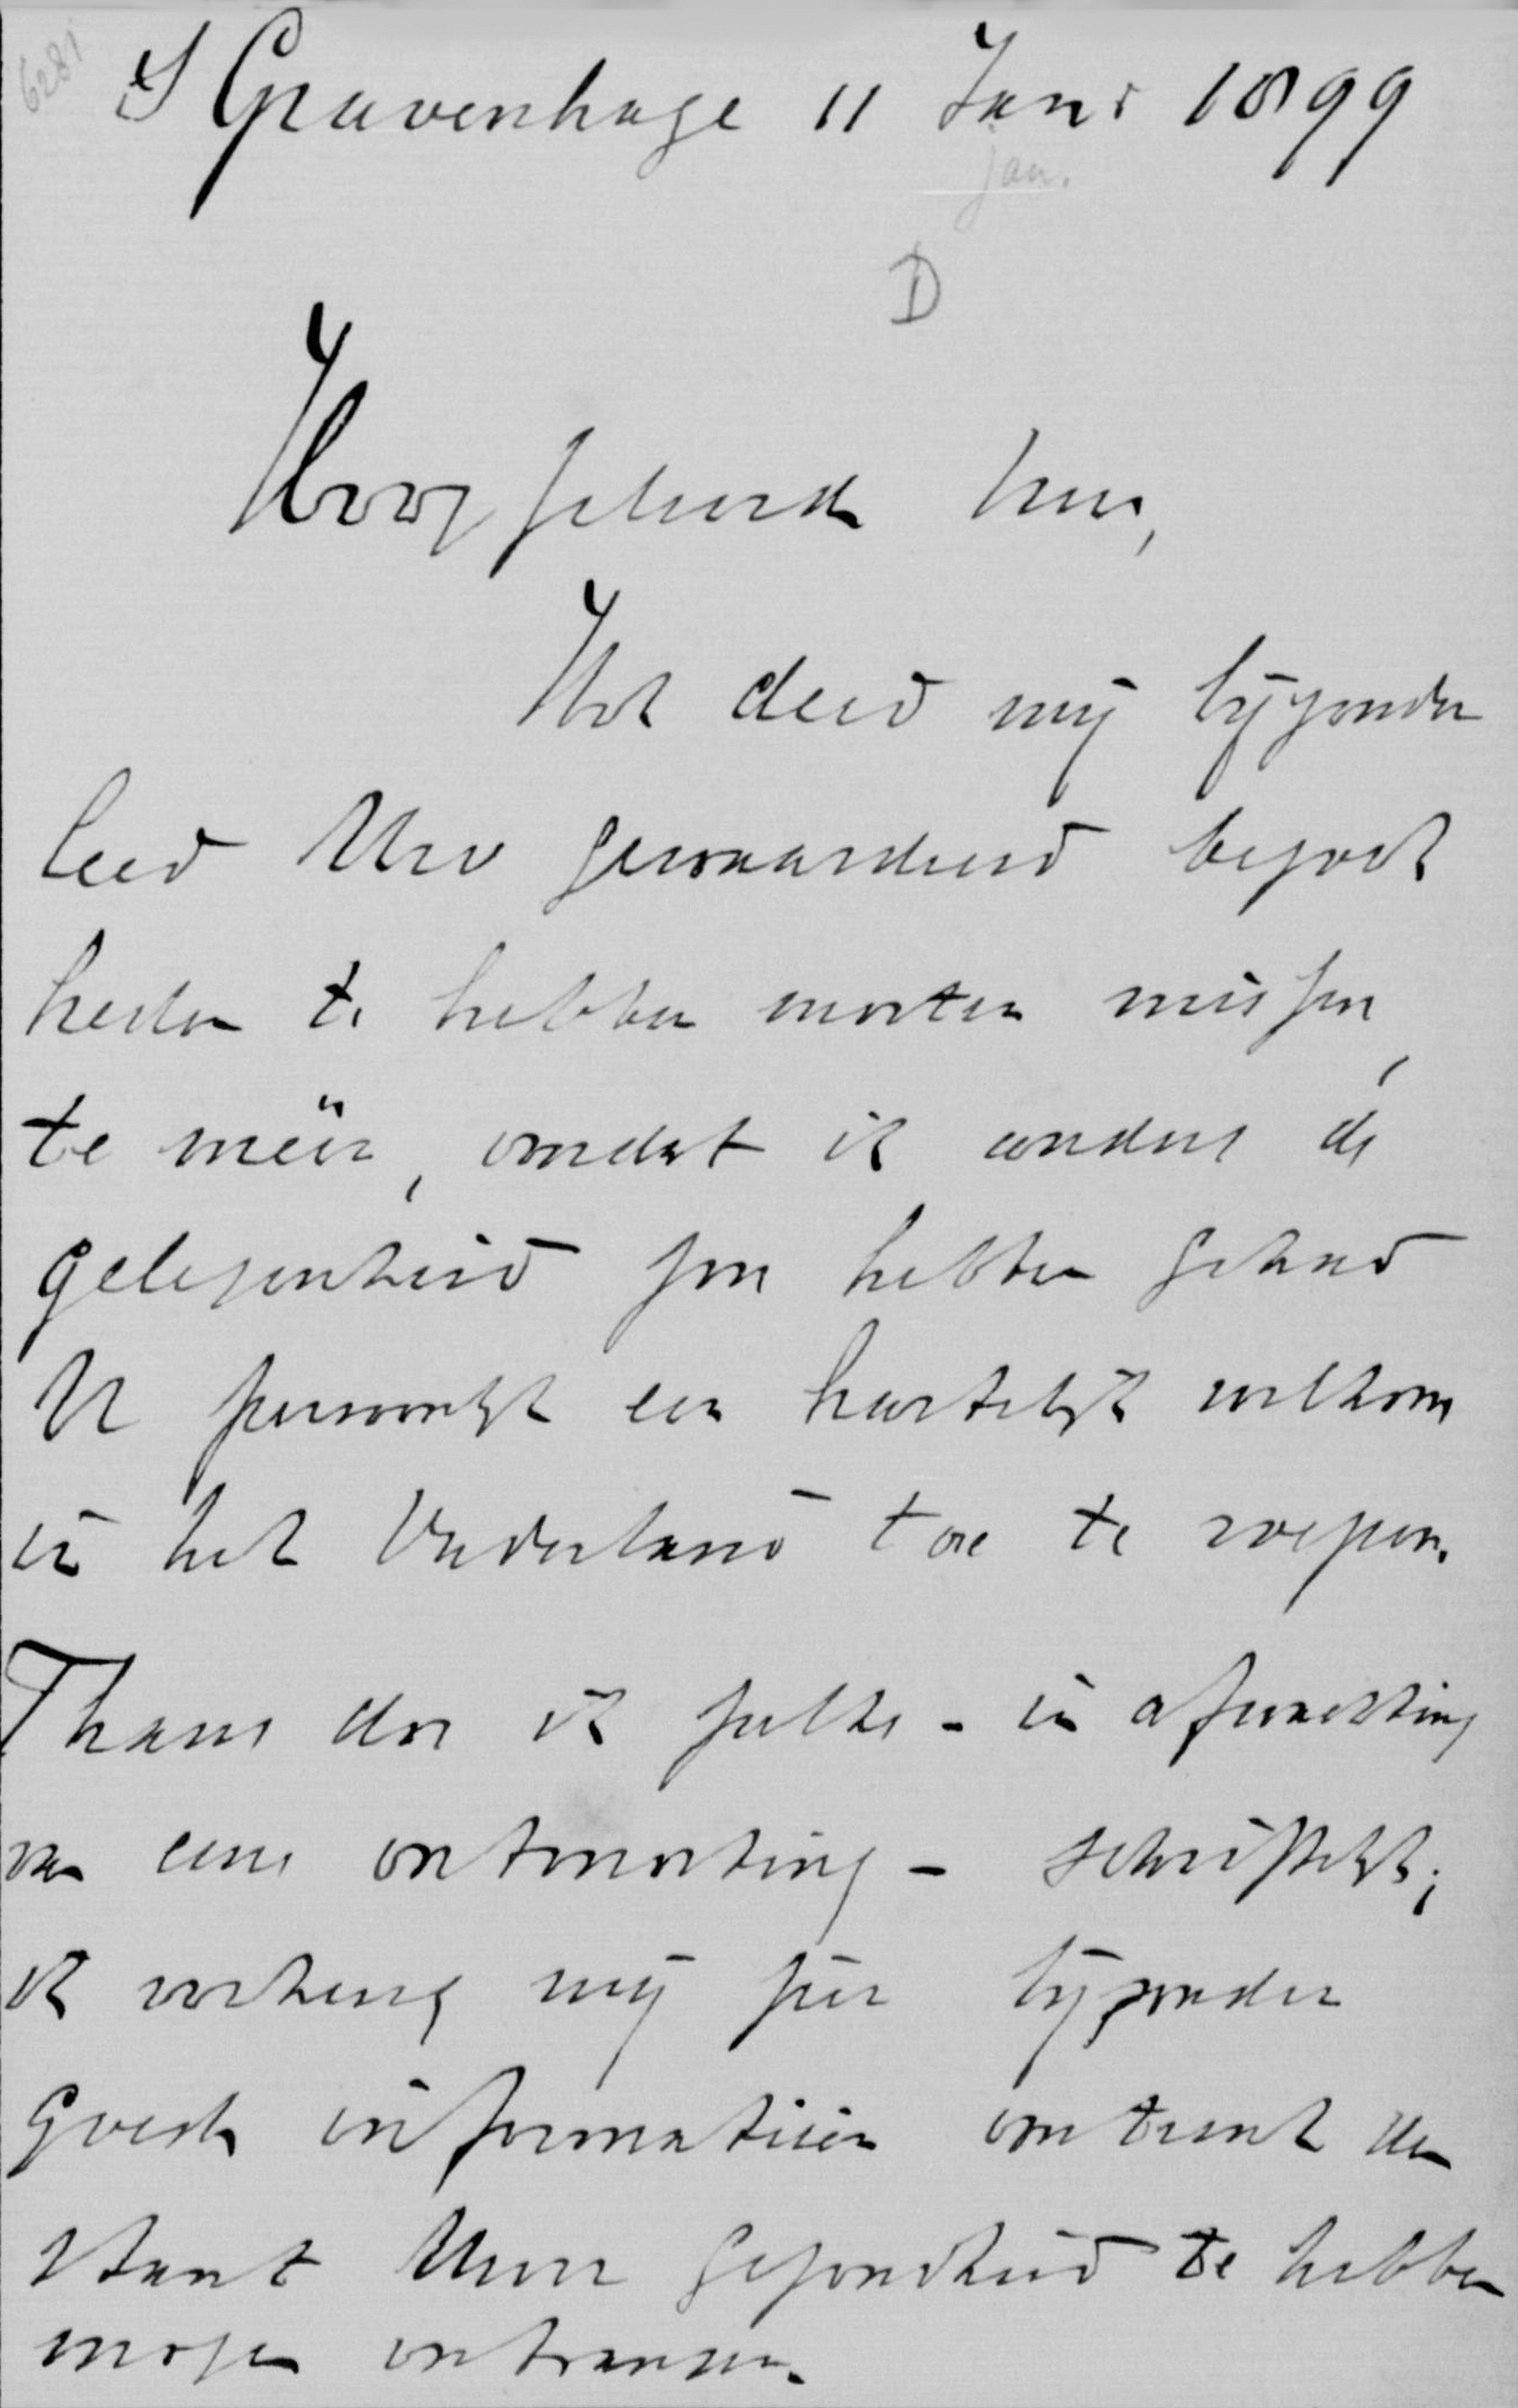 6281
S Gravenhage 11 Janr 1899
Jan.
D
Hooggeleerde heer,
Het deed mij bijzonder
leed Uw gewaardeerd bezoek
heden te hebben moeten missen,
te meër, omdat ik anders de
gelegenheid zou hebben gehad
U persoonlijk een hartelijk welkom
in het Vaderland toe te roepen.
Thans doe ik zulks - in afwachting
van eene ontmoeting - schriftelijk;
ik verheug mij zeer bijzonder
goede informatiën omtrent den
stand Uwer gezondheid te hebben
mogen ontvangen.